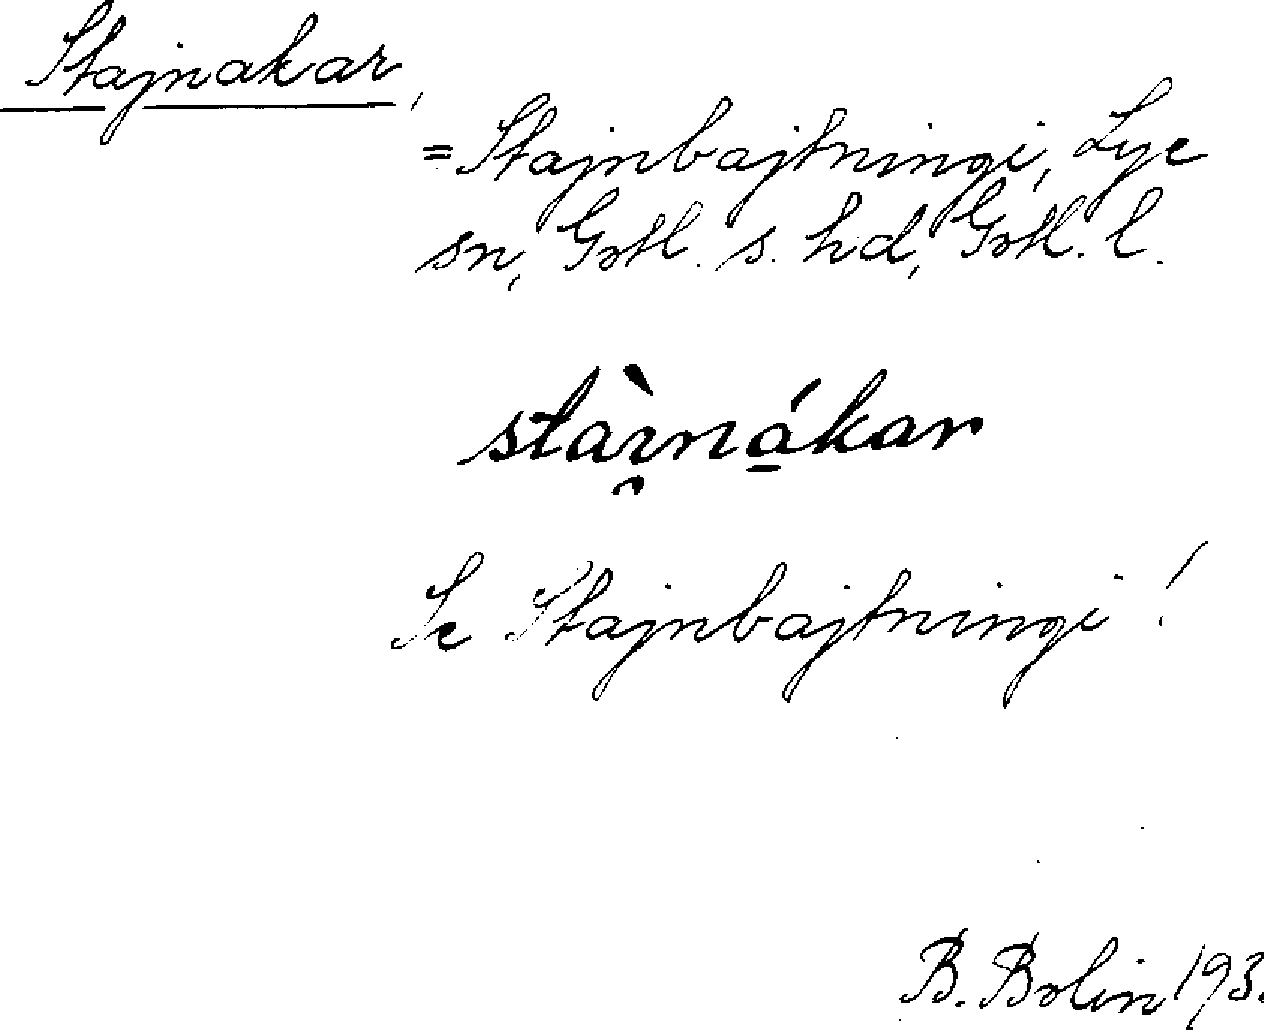 Stajnakar,
= Stajnbajtningi, Lye
sn, Gotl. s. hd, Gotl. l.
staı̯̀ná̱kar
Se Stajnbajtningi!
B. Bolin 193